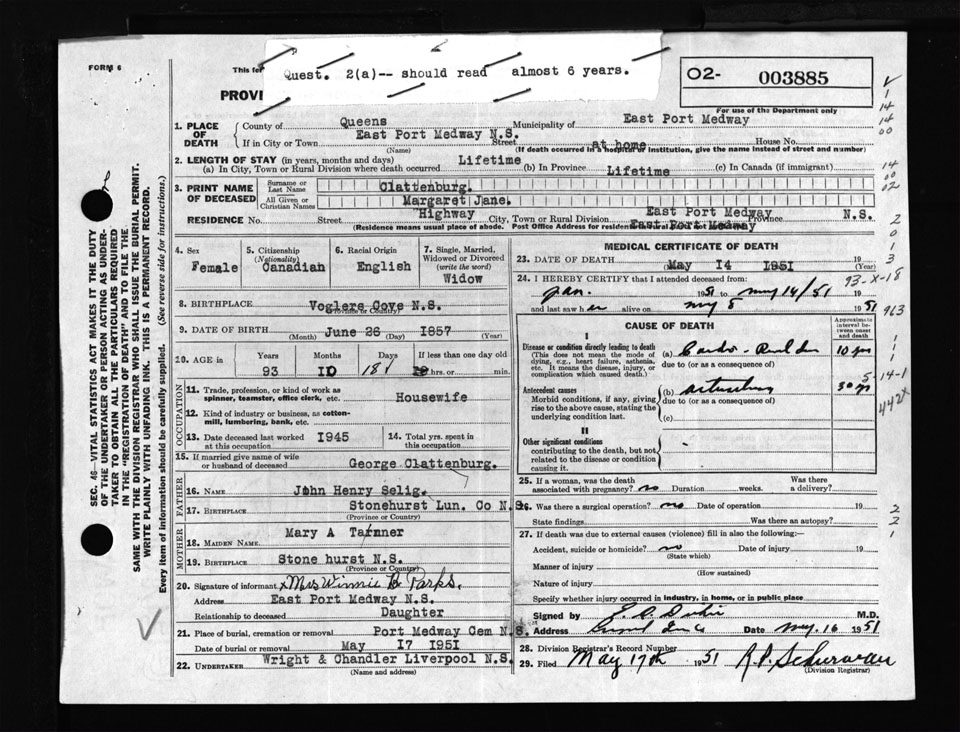 FORM 6
This for
Quest. 2(a)-- should read almost 6 years.
PROVI
02- 003885
For use of the Department only
1. PLACE OF DEATH
County of Queens Municipality of East Port Medway
If in City or Town East Port Medway N.S. Street at home House No.
(Name) (If death occurred in a hospital or institution, give the name instead of street and number)
2. LENGTH OF STAY (in years, months and days)
(a) In City, Town or Rural Division where death occurred Lifetime (b) In Province Lifetime (c) In Canada (if immigrant)
3. PRINT NAME OF DECEASED
Surname or Last Name Clattenburg.
All Given or Christian Names Margaret Jane.
RESIDENCE No. Street Highway City, Town or Rural Division East Port Medway Province N.S.
(Residence means usual place of abode. Post Office Address for residents East Port Medway
4. Sex Female
5. Citizenship (Nationality) Canadian
6. Racial Origin English
7. Single, Married, Widowed or Divorced (write the word) Widow
8. BIRTHPLACE Voglers Cove N.S.
(Province or Country)
9. DATE OF BIRTH June 26 1857
(Month) (Day) (Year)
10. AGE IN Years Months Days If less than one day old
93 10 18 hrs. or min.
OCCUPATION
11. Trade, profession, or kind of work as spinner, teamster, office clerk, etc. Housewife
12. Kind of industry or business, as cotton-mill, lumbering, bank, etc.
13. Date deceased last worked at this occupation 1945
14. Total yrs. spent in this occupation
15. If married give name of wife or husband of deceased George Clattenburg.
FATHER
16. NAME John Henry Selig.
17. BIRTHPLACE Stonehurst Lun. Co N.S.
(Province or Country)
MOTHER
18. MAIDEN NAME Mary A Tanner
19. BIRTHPLACE Stone hurst N.S.
(Province or Country)
20. Signature of informant x Mrs Winnie B Parks.
Address East Port Medway N.S.
Relationship to deceased Daughter
21. Place of burial, cremation or removal Port Medway Cem N.S.
Date of burial or removal May 17 1951
22. UNDERTAKER Wright & Chandler Liverpool N.S.
(Name and address)
MEDICAL CERTIFICATE OF DEATH
23. DATE OF DEATH May 14 1951 19
(Year)
24. I HEREBY CERTIFY that I attended deceased from:
Jan. 1951 to May 14/51 19
and last saw her alive on May 8 1951
CAUSE OF DEATH
Approximate interval between onset and death
I
Disease or condition directly leading to death (a) 10 yrs
(This does not mean the mode of dying, e.g., heart failure, asthenia, etc. It means the disease, injury, or complication which caused death.)
due to (or as a consequence of)
Antecedent causes (b)
Morbid conditions, if any, giving rise to the above cause, stating the underlying condition last.
due to (or as a consequence of)
(c)
II
Other significant conditions contributing to the death, but not related to the disease or condition causing it.
25. If a woman, was the death associated with pregnancy? no Duration weeks. Was there a delivery?
26. Was there a surgical operation? no Date of operation 19
State findings Was there an autopsy?
27. If death was due to external causes (violence) fill in also the following:—
Accident, suicide or homicide? no Date of injury 19
(State which)
Manner of injury
(How sustained)
Nature of injury
Specify whether injury occurred in industry, in home, or in public place
Signed by M.D.
Address Date May. 16 1951
28. Division Registrar's Record Number
29. Filed May 17th 1951
(Division Registrar)
SEC. 46—VITAL STATISTICS ACT MAKES IT THE DUTY
OF THE UNDERTAKER OR PERSON ACTING AS UNDER-
TAKER TO OBTAIN ALL THE PARTICULARS REQUIRED
IN THE "REGISTRATION OF DEATH" AND TO FILE THE
SAME WITH THE DIVISION REGISTRAR WHO SHALL ISSUE THE BURIAL PERMIT.
WRITE PLAINLY WITH UNFADING INK. THIS IS A PERMANENT RECORD.
Every item of information should be carefully supplied. (See reverse side for instructions.)
93-X-18
963
5-14-1